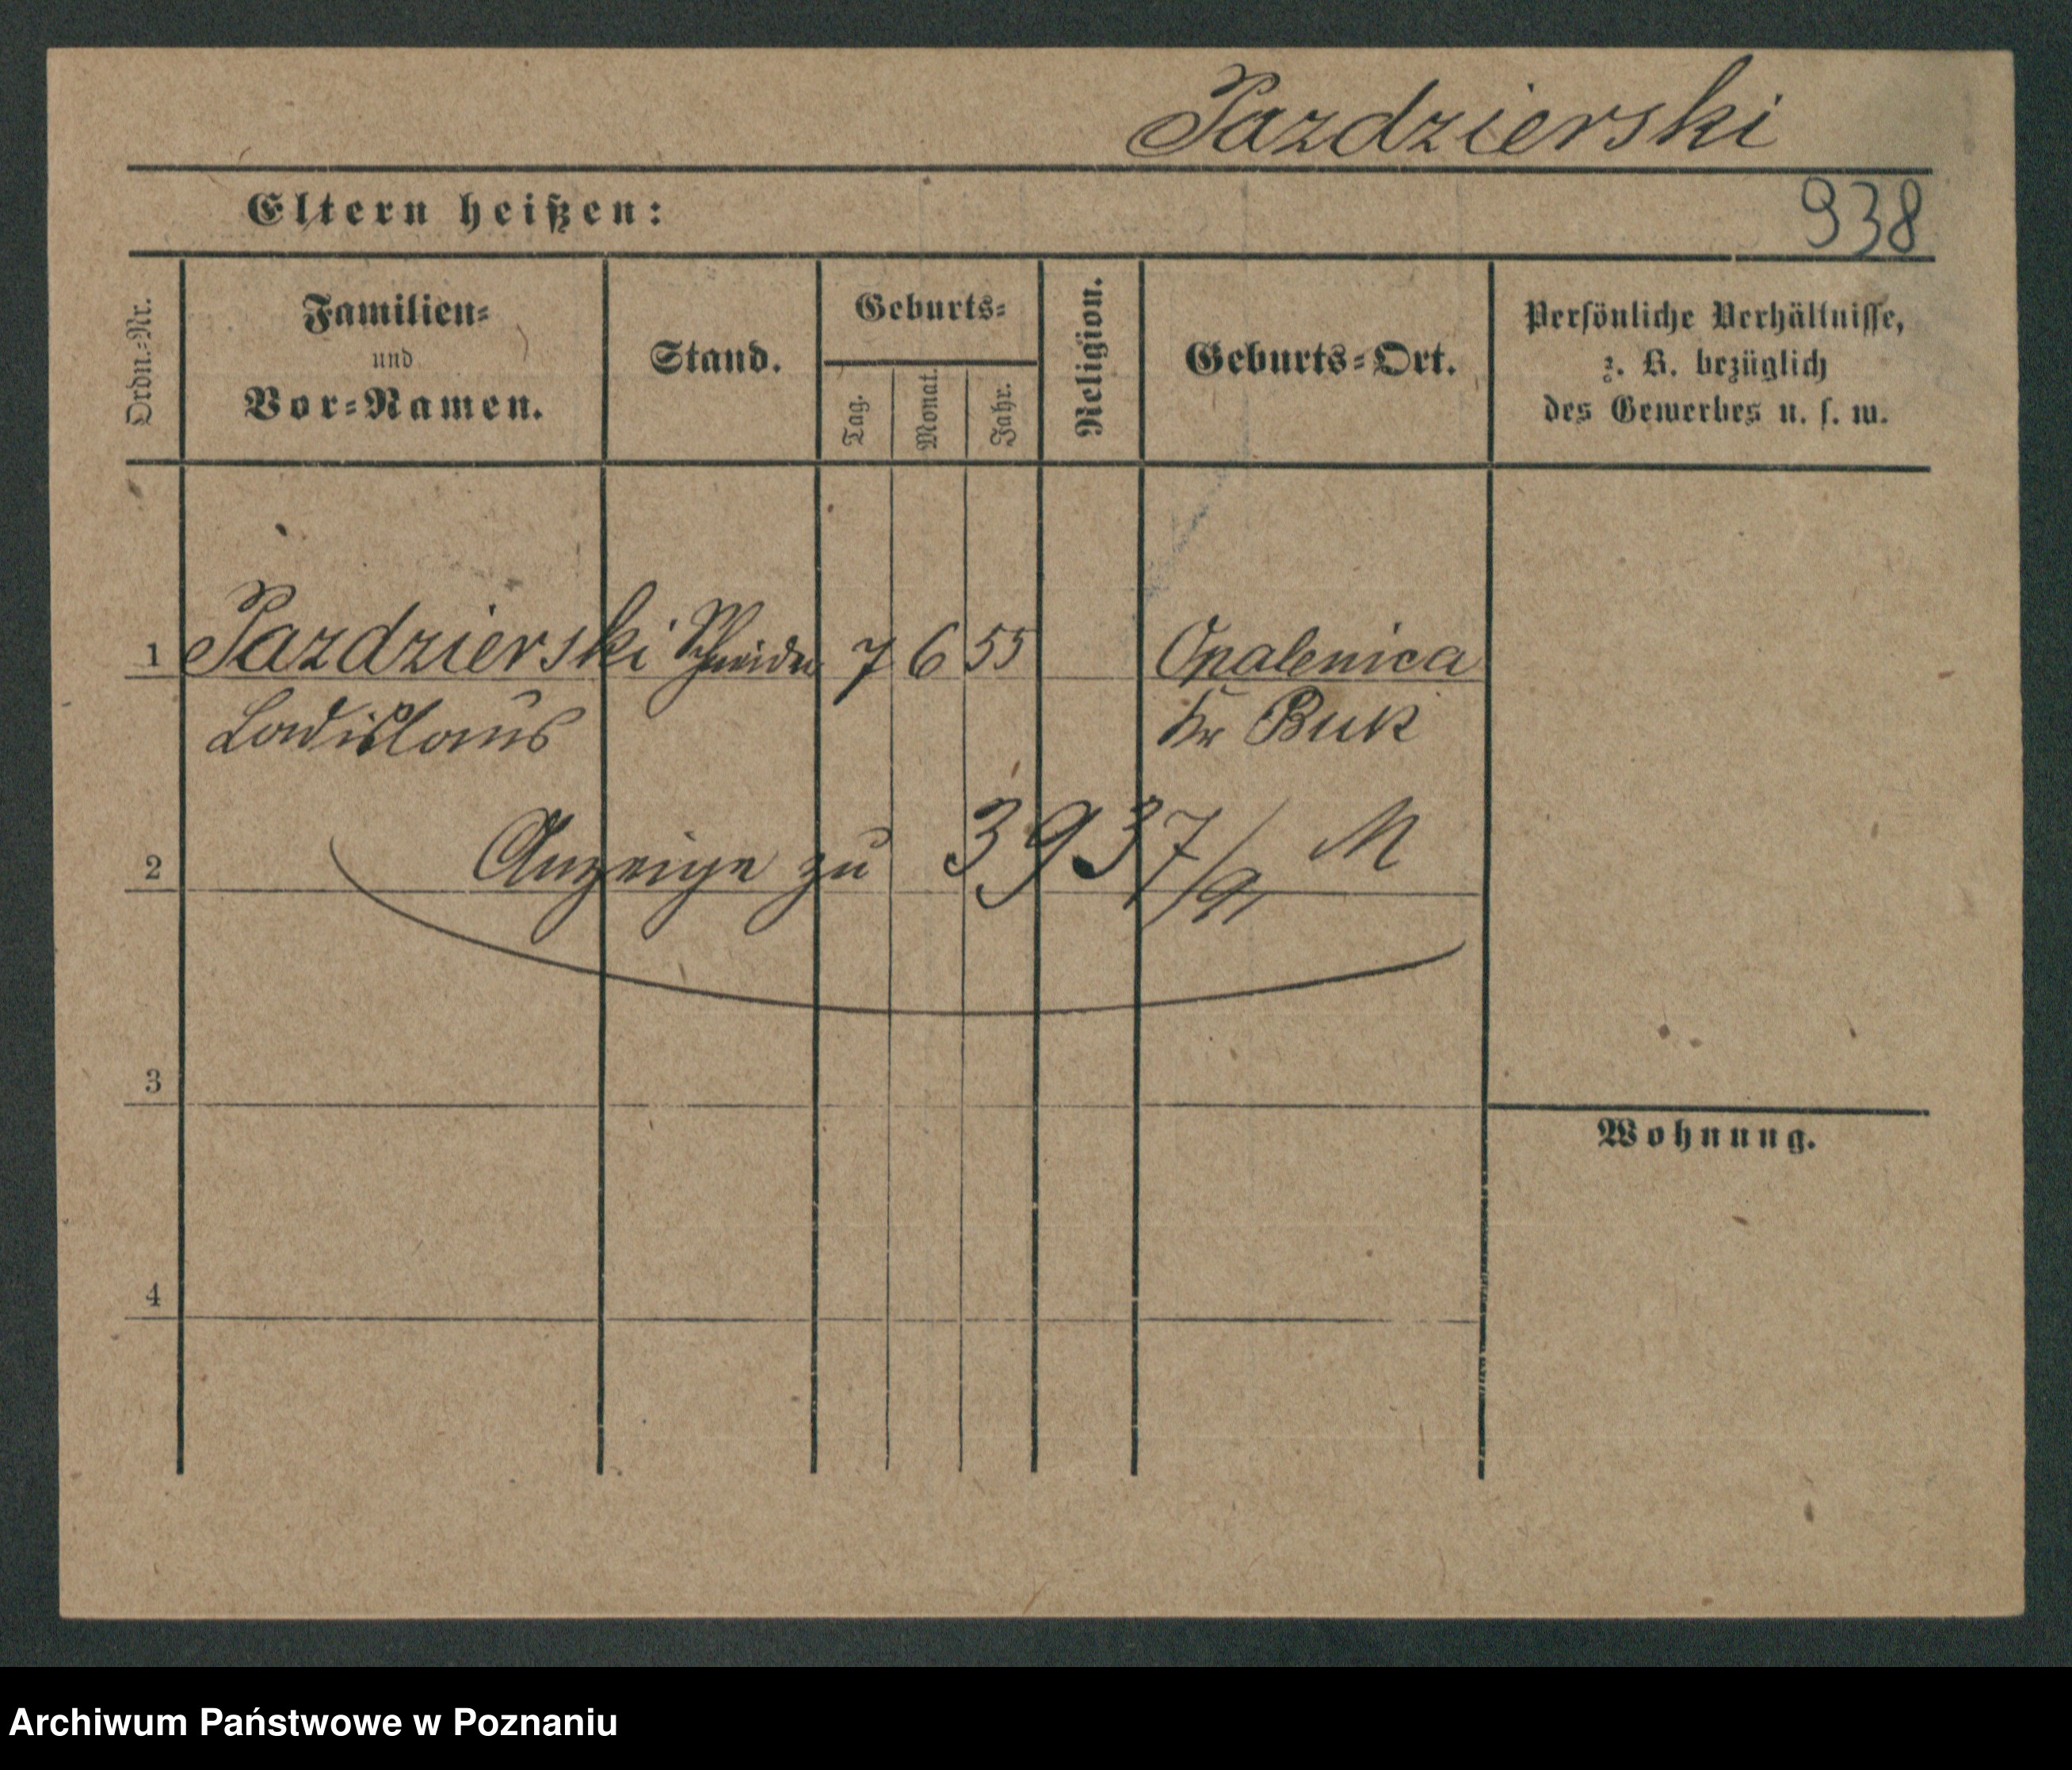 Pazdzierski
Eltern heißen:
938
Ordn.-Nr.
Familien-
und
Vor-Namen.
Stand.
Geburts-
Tag.
Monat.
Jahr.
Religion.
Geburts-Ort.
Persönliche Verhältnisse,
z. B. bezüglich
des Gewerbes u. s. w.
1 Pazdzierski Schneider 7 6 55 Opalenica
Ladislaus Kr Buk
2 Anzeige zu 3937/91 M
3
Wohnung.
4
Archiwum Państwowe w Poznaniu